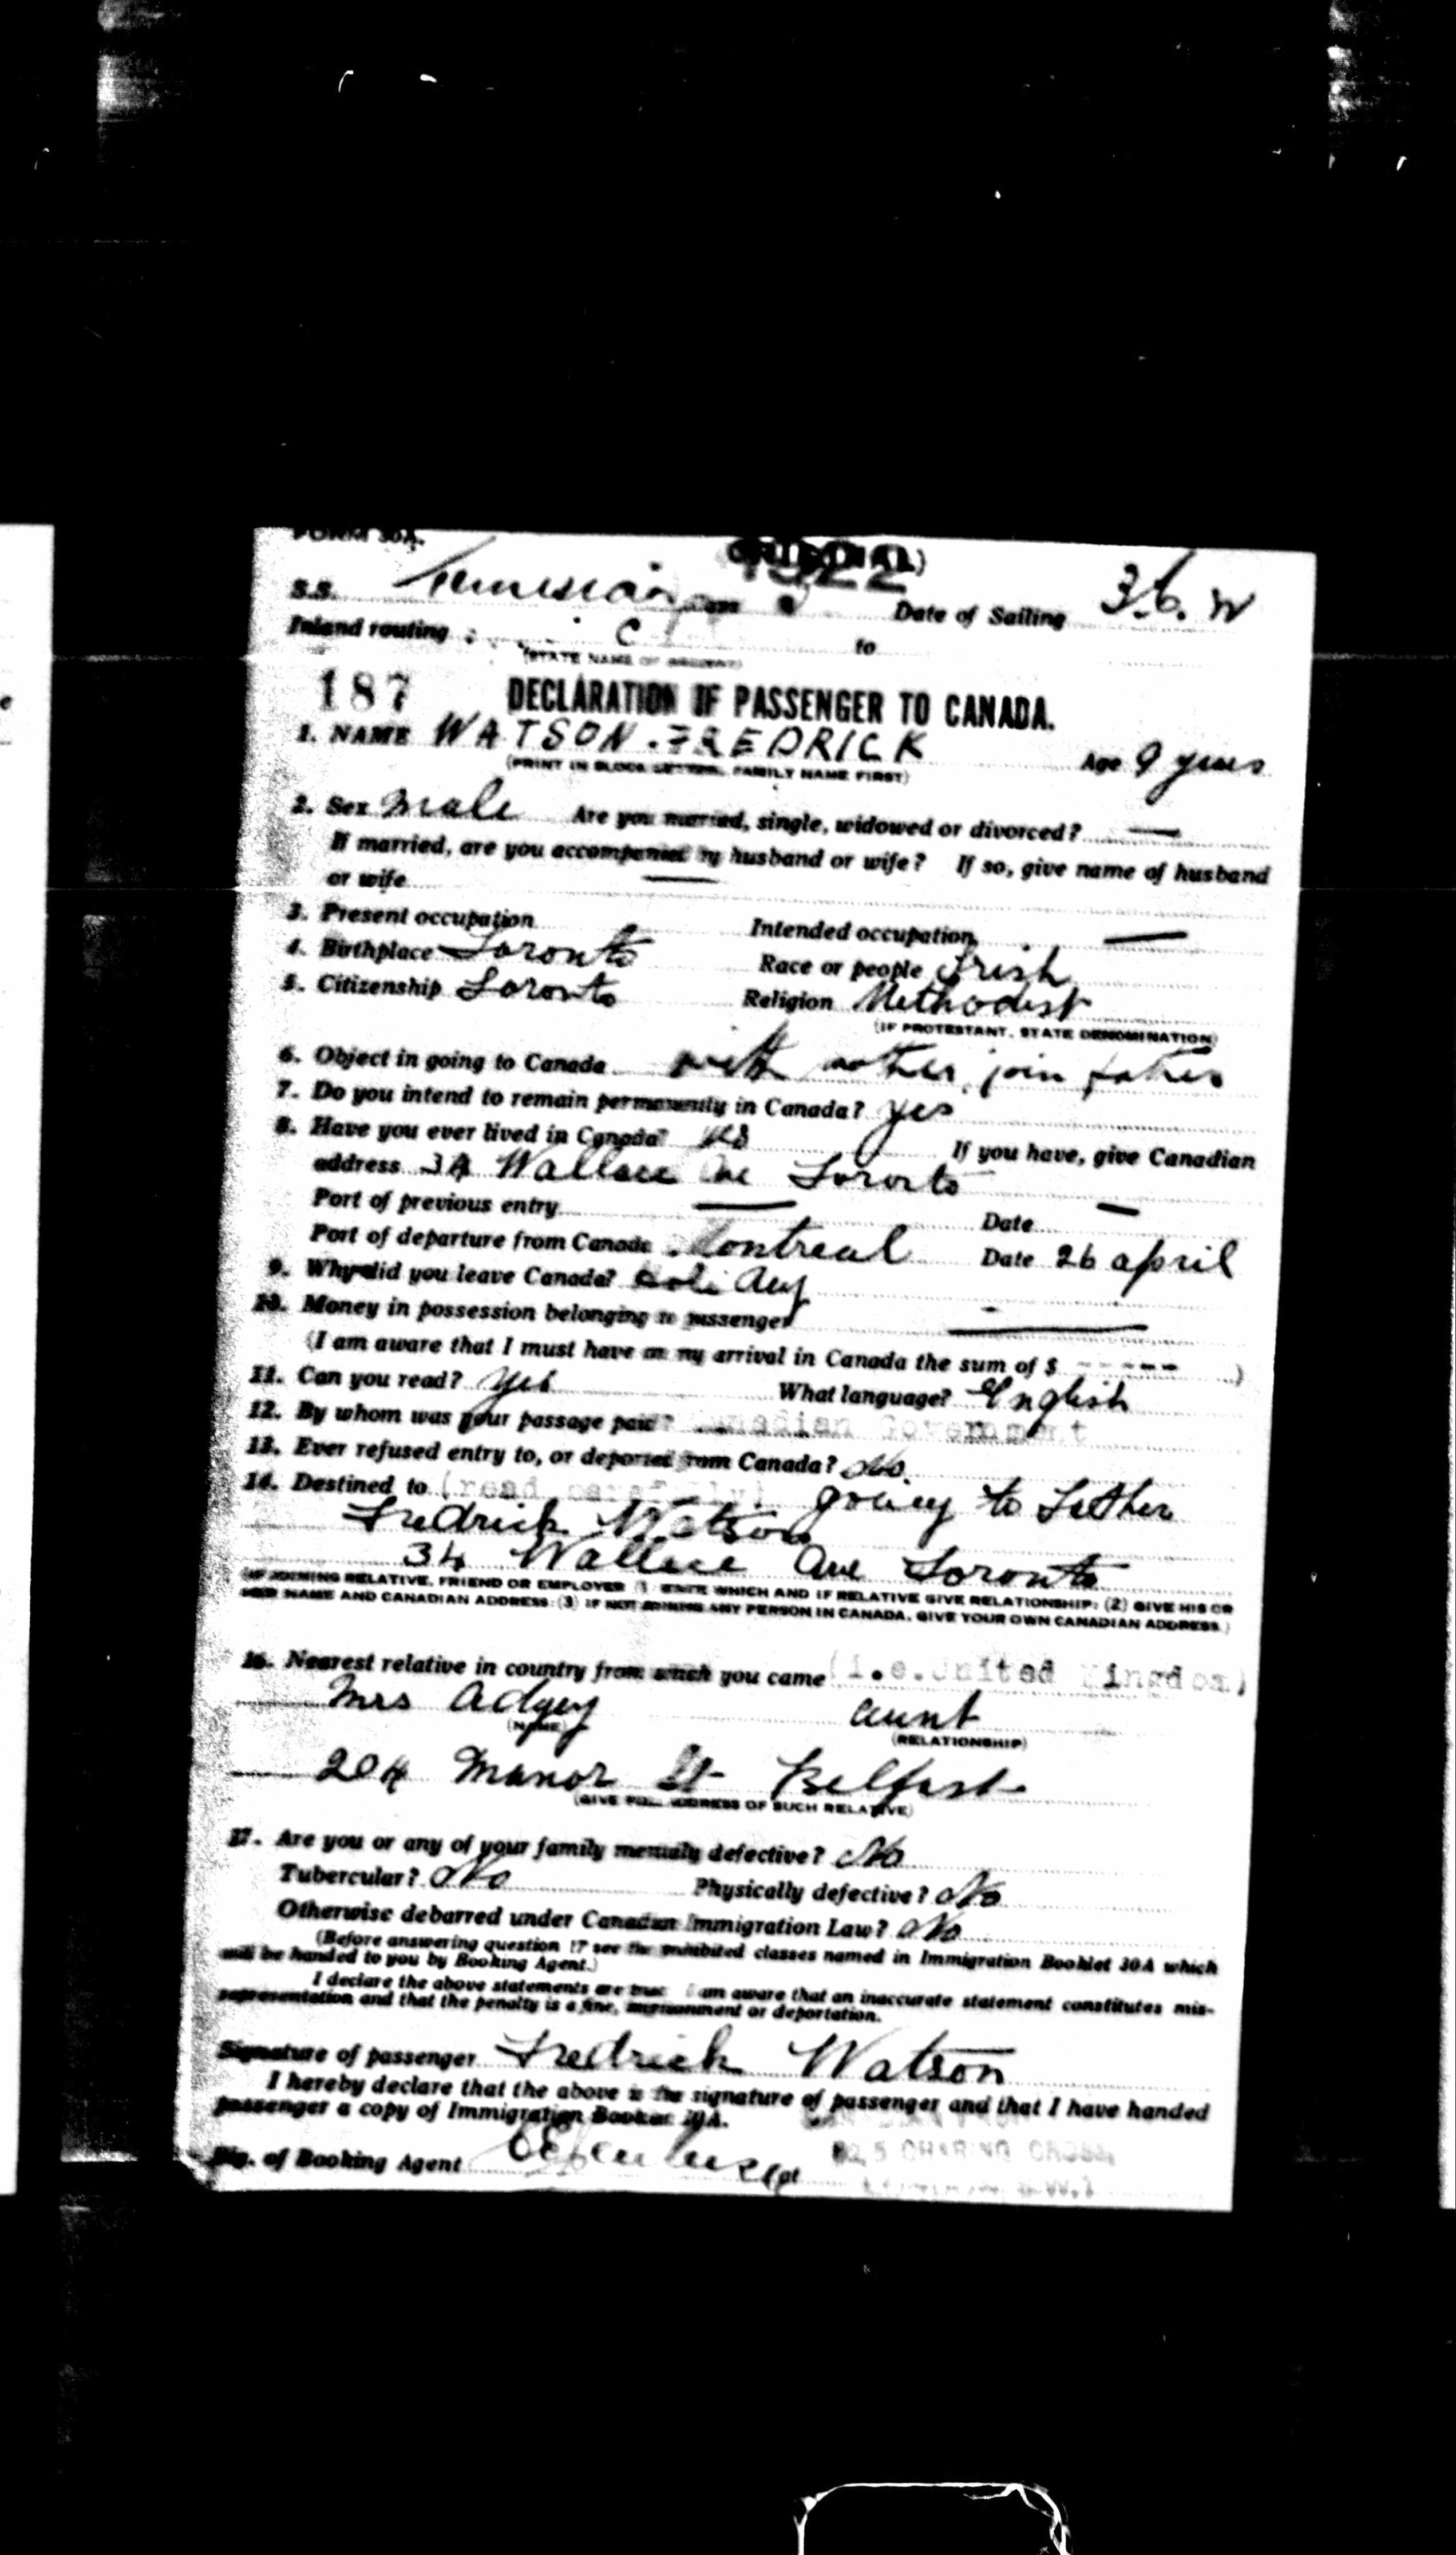 FORM 30A.
ORIGINAL)
1922
S.S. Tunisian Class Date of Sailing 3.6.22
Inland routing C to
(STATE NAME OF
187 DECLARATION OF PASSENGER TO CANADA.
1. NAME WATSON . FREDRICK Age 9 years
(PRINT IN BLOCK LETTERS, FAMILY NAME FIRST)
2. Sex Male Are you married, single, widowed or divorced? —
If married, are you accompanied by husband or wife? If so, give name of husband
or wife —
3. Present occupation Intended occupation —
4. Birthplace Toronto Race or people Irish
5. Citizenship Toronto Religion Methodist
(IF PROTESTANT, STATE DENOMINATION)
6. Object in going to Canada with mother, join father
7. Do you intend to remain permanently in Canada? yes
8. Have you ever lived in Canada? yes If you have, give Canadian
address 34 Wallace Ave Toronto
Port of previous entry — Date —
Port of departure from Canada Montreal Date 26 april
9. Why did you leave Canada? Holiday
10. Money in possession belonging to passenger —
(I am aware that I must have on my arrival in Canada the sum of $ ----- )
11. Can you read? yes What language? English
12. By whom was your passage paid? Canadian Government
13. Ever refused entry to, or deported from Canada? No
14. Destined to (read carefully) going to Father
Fredrick Watson
34 Wallace Ave Toronto
(IF JOINING RELATIVE, FRIEND OR EMPLOYER (1) STATE WHICH AND IF RELATIVE GIVE RELATIONSHIP: (2) GIVE HIS OR
HER NAME AND CANADIAN ADDRESS: (3) IF NOT JOINING ANY PERSON IN CANADA, GIVE YOUR OWN CANADIAN ADDRESS.)
16. Nearest relative in country from which you came (i.e. United Kingdom)
Mrs Adgey aunt
(NAME) (RELATIONSHIP)
204 Manor St Belfast
(GIVE FULL ADDRESS OF SUCH RELATIVE)
17. Are you or any of your family mentally defective? No
Tubercular? No Physically defective? No
Otherwise debarred under Canadian Immigration Law? No
(Before answering question 17 see the prohibited classes named in Immigration Booklet 30A which
will be handed to you by Booking Agent.)
I declare the above statements are true. I am aware that an inaccurate statement constitutes mis-
representation and that the penalty is a fine, imprisonment or deportation.
Signature of passenger Fredrick Watson
I hereby declare that the above is the signature of passenger and that I have handed
passenger a copy of Immigration Booklet 30A.
Sig. of Booking Agent at CHARING CROSS,